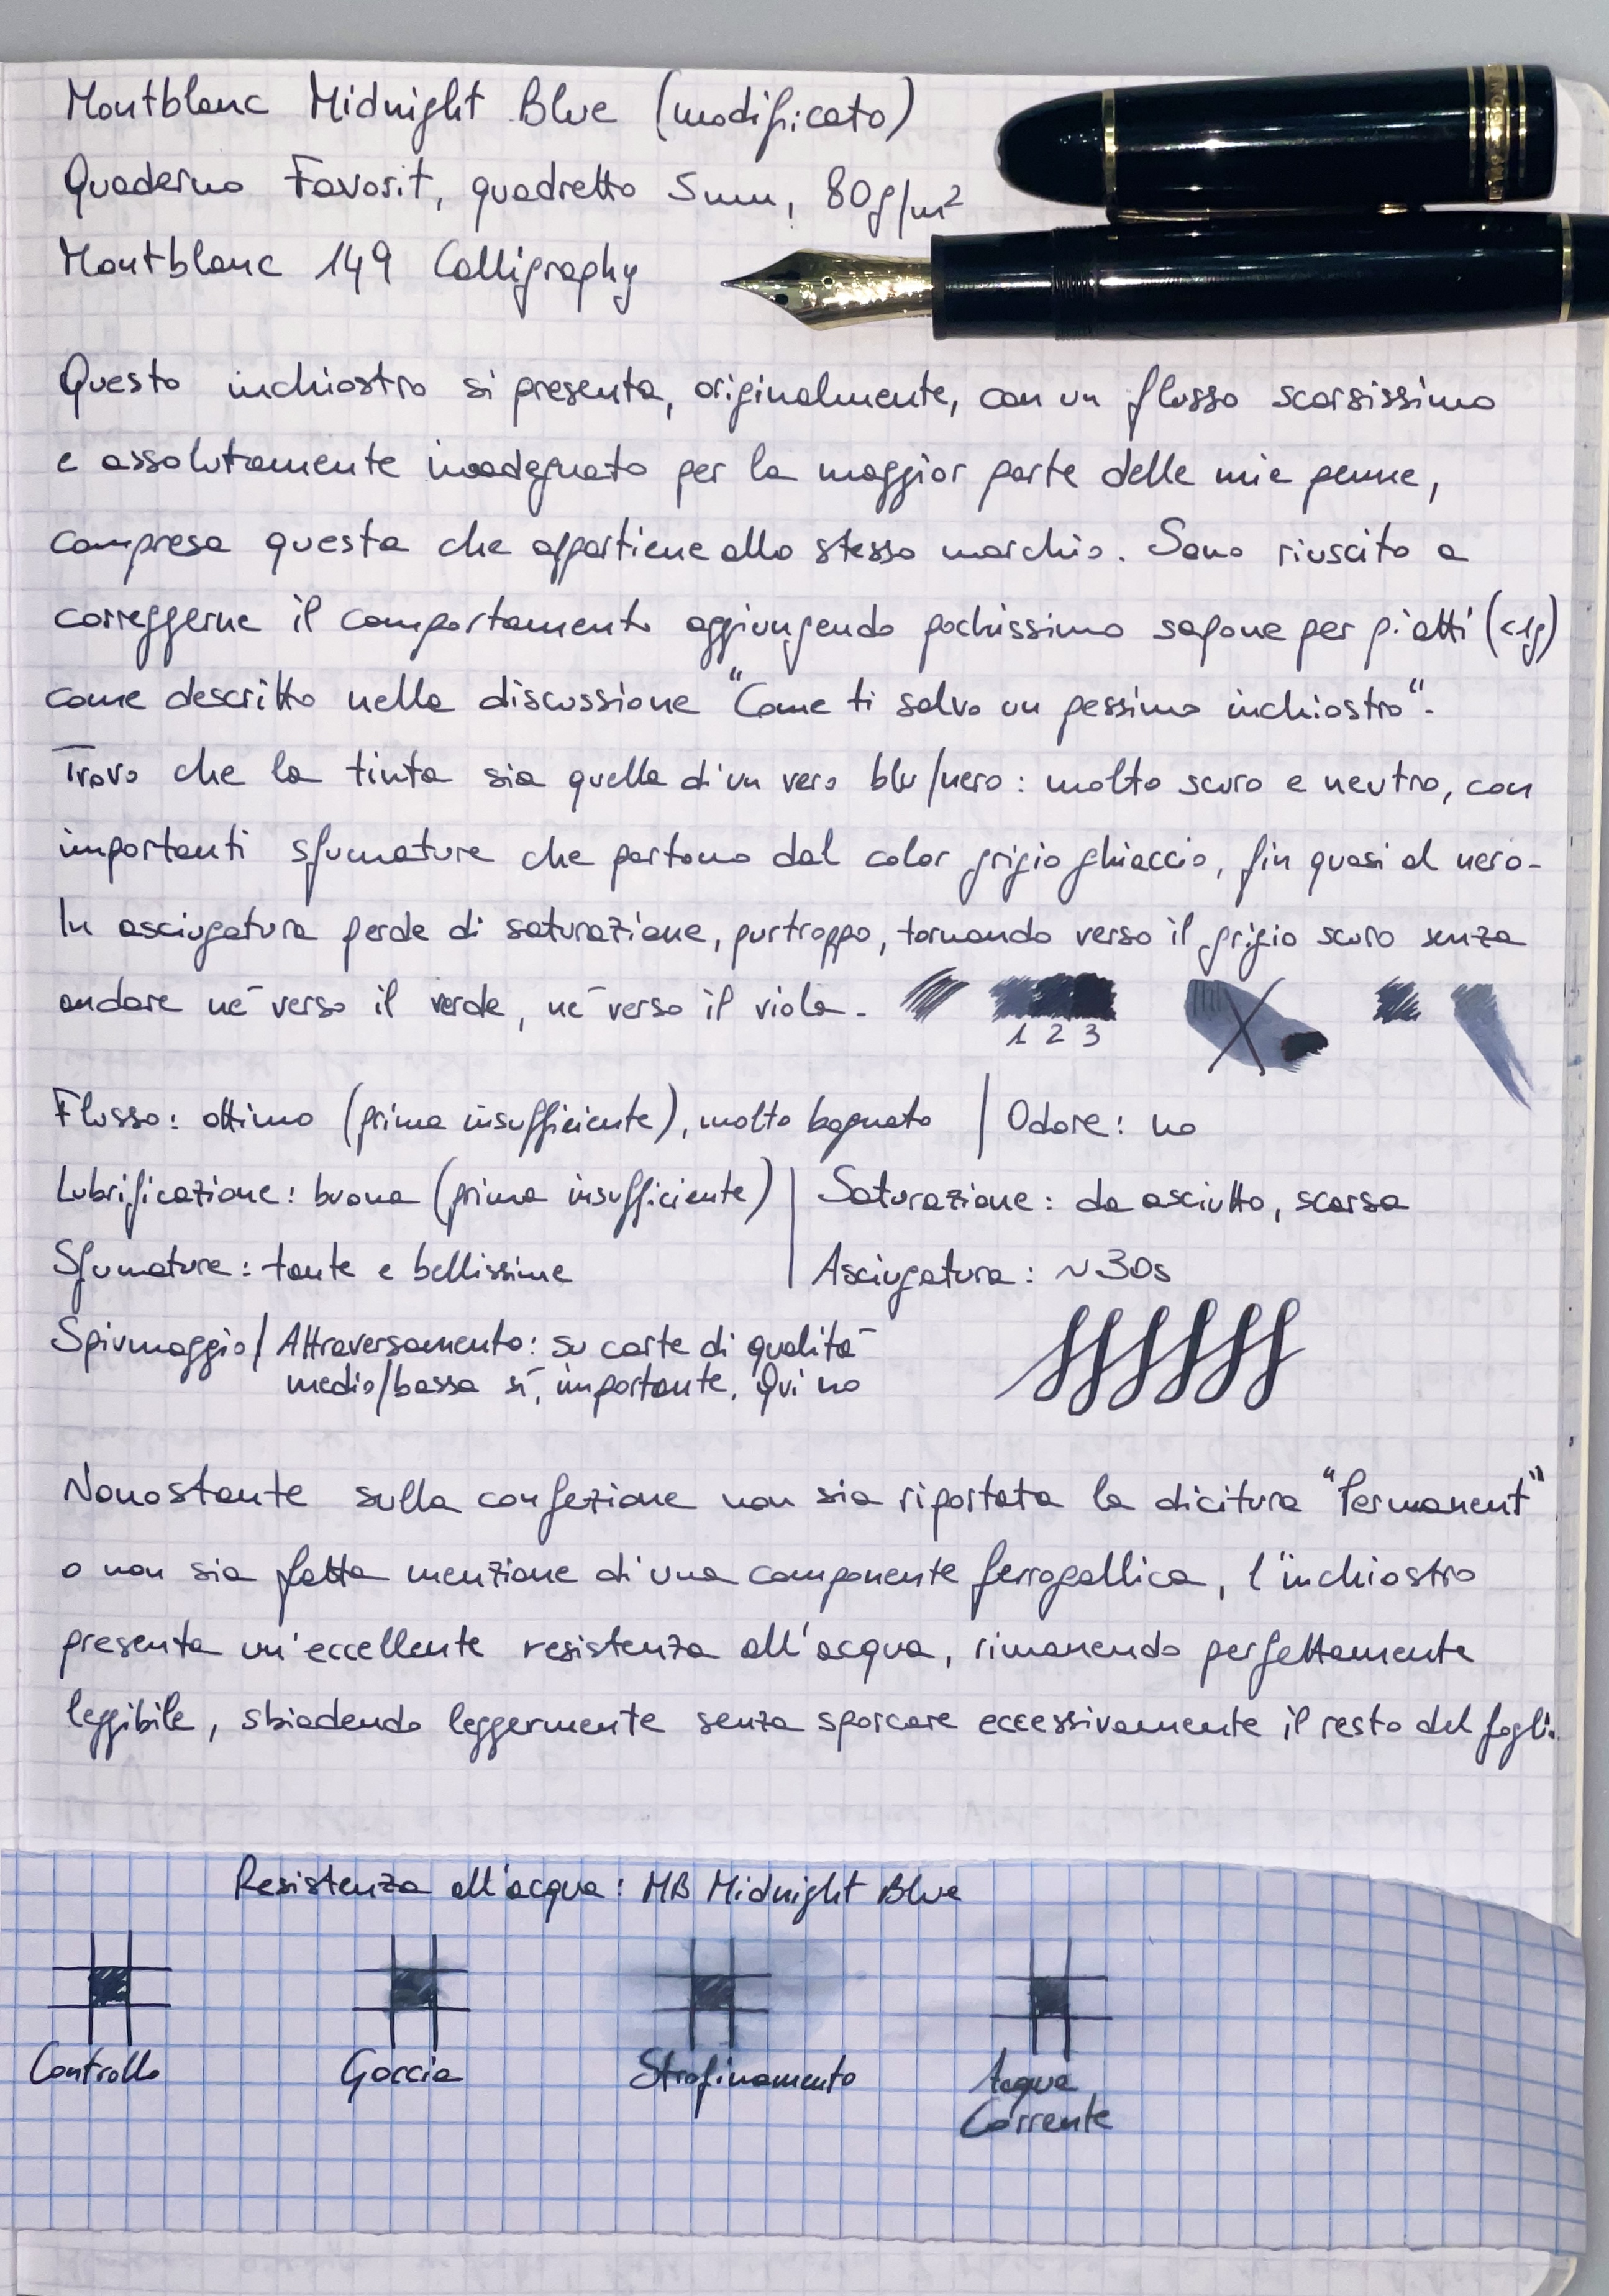 Montblanc Midnight Blue (modificato)
Quaderno Favorit, quadretto 5mm, 80g/m²
Montblanc 149 Calligraphy
Questo inchiostro si presenta, originalmente, con un flusso scarsissimo
e assolutamente inadeguato per la maggior parte delle mie penne,
compresa questa che appartiene allo stesso marchio. Sono riuscito a
correggerne il comportamento aggiungendo pochissimo sapone per piatti (<1g)
come descritto nella discussione "Come ti salvo un pessimo inchiostro".
Trovo che la tinta sia quella d'un vero blu/nero: molto scuro e neutro, con
importanti sfumature che partono dal color grigio ghiaccio, fin quasi al nero.
In asciugatura perde di saturazione, purtroppo, tornando verso il grigio scuro senza
andare né verso il verde, né verso il viola.
1 2 3
Flusso: ottimo (prima insufficiente), molto bagnato | Odore: no
Lubrificazione: buona (prima insufficiente) | Saturazione: da asciutto, scarsa
Sfumature: tante e bellissime | Asciugatura: ~30s
Spiumaggio/Attraversamento: su carte di qualità
medio/bassa sì, importante. Qui no
Nonostante sulla confezione non sia riportata la dicitura "Permanent"
o non sia fatta menzione di una componente ferrogallica, l'inchiostro
presenta un'eccellente resistenza all'acqua, rimanendo perfettamente
leggibile, sbiadendo leggermente senza sporcare eccessivamente il resto del foglio.
Resistenza all'acqua: MB Midnight Blue
Controllo Goccia Strofinamento Acqua
Corrente